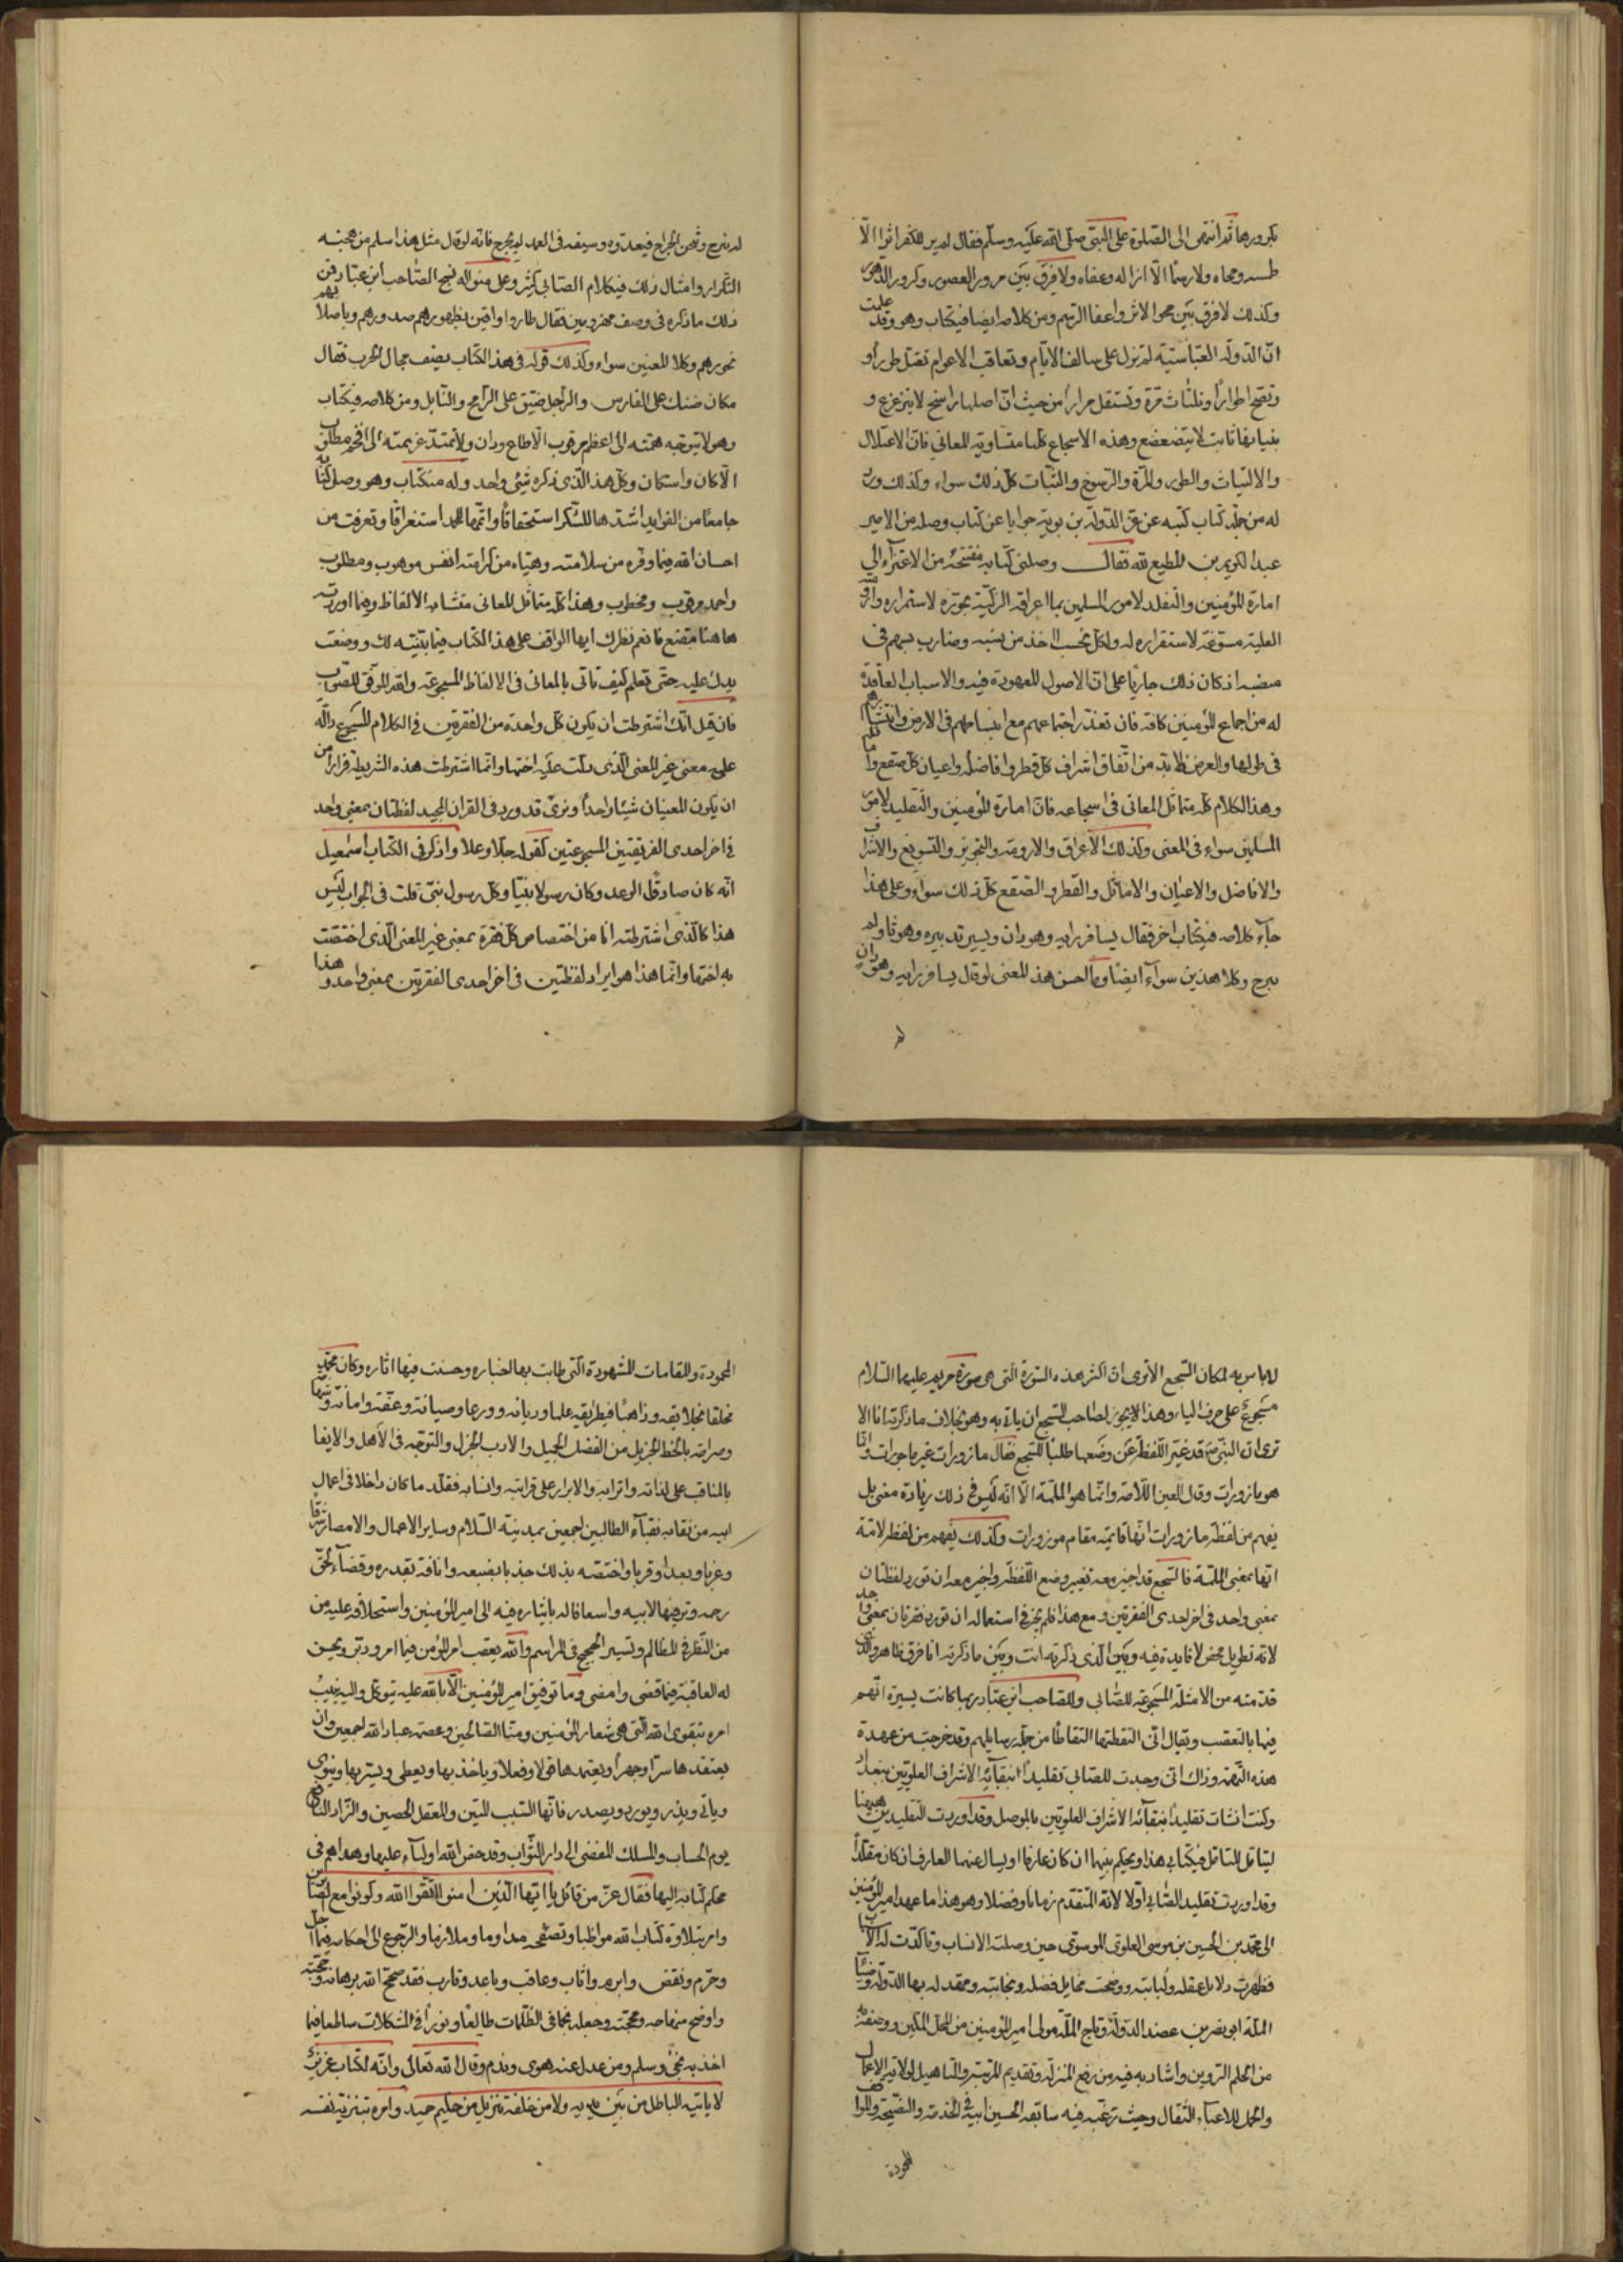 بكرورها ثم انتهى الى الصلوة على النبى صلى الله عليه وسلم فقال لم ير للكفر اثرا الا
طمسه ومحاه ولا رسما الا ازاله وعفاه ولا فرق بين مرور العصور وكرور الدهور
وكذلك لا فرق بين محو الاثر واعفا الرسم ومن كلامه ايضا فى كتاب وهو وقد علمت
ان الدولة العباسية لم تزل على سالف الايام وتعاقب الاعوام تعتل طورا و
وتصح اطوارا وتلتاث مرة وتستقل مرارا من حيث ان اصلها راسخ لا يتزعزع و
بنيانها ثابت لا يتضعضع وهذه الاسجاع كلها متساوية المعانى فان الاعتلال
والالتياث والطور والمرة والرسوخ والثبات كل ذلك سواء وكذلك ورد
له من جملة كتاب كتبه عن عز الدولة بن بويه جوابا عن كتاب وصله من الامير
عبد الكريم بن المطيع لله فقال وصلنى كتابه مفتتحه من الاعتزاء الى
امارة المؤمنين والتقلد لامور المسلمين بما اعراقه الزكية مجوزة لاستمراره وارومته
العلية مسوغة لاستقراره له ولكل نجيب اخذ من نسبه وضارب بسهم فى
منصبه اذ كان ذلك جاريا على الاصول المعهودة فيه والاسباب العاقدة
له من اجماع المؤمنين كافة فان تعذر اجتماعهم مع انبساطهم فى الارض وانتشارهم
فى طولها والعرض فلا بد من اتفاق اشراف كل قطر وافاضله واعيان كل صقع واماثله
وهذا الكلام كله متماثل المعانى فى اسجاعه فان امارة المؤمنين والتقليد لامور
المسلمين سواء فى المعنى وكذلك الاعراق والارومة والتجويز والتسويغ والاشراف
والافاضل والاعيان والاماثل والقطر والصقع كل ذلك سواء وعلى هذا
جاء كلامه فى كتاب اخر فقال يسافر رايه وهو دان ويسير تدبيره وهو ثاو لم
يبرح وكلا هذين سواء ايضا وما احسن هذا المعنى لو قال يسافر رايه وهو دان
لم
لم يبرح ويثخن الجراح فى عدوه وسيفه فى الغمد لم يجرح فانه لو قال مثل هذا سلم من هجنه
التكرار وامثال ذلك فى كلام الصابى كثير وعلى منواله نسج الصاحب ابن عباد فمن
ذلك ما ذكره فى وصف مهزومين فقال طاروا واقين بظهورهم صدورهم وباصلابهم
نحورهم وكلا المعنيين سواء وكذلك قوله فى هذا الكتاب يصف مجال الحرب فقال
مكان ضنك على الفارس والراجل ضيق على الرامح والنابل ومن كلامه فى كتاب
وهو لا تتوجه همته الى اعظم مرقوب الا طاع ودان ولا تمتد عزيمته الى افخم مطلوب
الا كان واستكان وكل هذا الذى ذكره شئ واحد وله من كتاب وهو وصل كتابه
جامعا من الفوايد اشدها للشكر استحقاقا واتمها للحمد استغراقا وتعرفت من
احسان الله فيما وفره من سلامته وهياه من كرامته انفس موهوب ومطلوب
واحمد مرقوب ومخطوب وهذا كله متماثل المعانى متشابه الالفاظ وفيما اوردته
هاهنا مقنع فانعم نظرك ايها الواقف على هذا الكتاب فيما بينته لك ووضعت
يدك عليه حتى تعلم كيف تاتى بالمعانى فى الالفاظ المسجوعة والله الموفق للصواب
فان قيل انك اشترطت ان يكون كل واحدة من الفقرتين فى الكلام المسجوع دالة
على معنى غير المعنى الذى دلت عليه اختها وانما اشترطت هذه الشريطة فرارا من
ان يكون المعنيان شيئا واحدا ونرى قد ورد فى القران المجيد لفظتان بمعنى واحد
فى اخر احدى الفقرتين المسجوعتين كقوله جل وعلا واذكر فى الكتاب اسمعيل
انه كان صادق الوعد وكان رسولا نبيا وكل رسول نبى قلت فى الجواب ليس
هذا كالذى اشترطته انا من اختصاص كل فقرة بمعنى غير المعنى الذى اختصت
به اختها وانما هذا هو ايراد لفظتين فى اخر احدى الفقرتين بمعنى واحد وهذا
لا باس به لمكان السجع الا ترى ان اكثر هذه السورة التى هى سورة مريم عليها السلام
مسجوع على حرف الياء وهذا لا يجوز لصاحب السجع ان ياتى به وهو بخلاف ما ذكرته انا الا
ترى ان النبى قد غير اللفظة عن وضعها طلبا للسجع فقال مازورات غير ماجورات وانما
هو موزورات وقال العين اللامة وانما هو الملمة الا انه ليس فى ذلك زيادة معنى بل
يفهم من لفظة مازورات انها قايمة مقام موزورات وكذلك يفهم من لفظ لامة
انها بمعنى الملمة فالسجع قد اجيز معه تغيير وضع اللفظة واجيز معه ان تورد لفظتان
بمعنى واحد فى اخر احدى الفقرتين ومع هذا فلم يجز فى استعماله ان تورد فقرتان بمعنى واحد
لانه تطويل محض لا فايدة فيه وبين الذى ذكرته انت وبين ما ذكرته انا فرق ظاهر والذى
قدمته من الامثلة المسجوعة للصابى وللصاحب ابن عباد ربما كانت يسيرة اتهم
فيها بالتعصب ويقال انى التقطتها التقاطا من جملة رسايلهم وقد خرجت من عهدة
هذه التهمة وذاك انى وجدت للصابى تقليدا بنقابة الاشراف العلويين ببغداد
وكنت انشات تقليدا بنقابة الاشراف العلويين بالموصل وقد اوردت التقليدين ههنا
ليتامل المتامل فى كتابى هذا ويحكم بينهما ان كان عارفا او يسال عنهما العارف ان كان مقلدا
وقد اوردت تقليد الصابى اولا لانه المتقدم زمانا وفضلا وهو هذا ما عهد امير المؤمنين
الى محمد بن الحسين بن موسى العلوى الموسوى حين وصلته الانساب وتاكدت له الاسباب
فظهرت دلايل عقله ولبابته ووضحت مخايل فضله ونجابته ومهد له بها الدولة وضياء
الملة ابو نصر بن عضد الدولة وتاج الملة مولى امير المؤمنين من المحل المكين ووصفه
من الحلم الرزين واشاد به فيه من رفع المنزلة وتقديم المرتبة والتاهيل لولاية الاعمال
والحمل للاعباء الثقال وحيث رغبه فيه سابقة الحسين ابيه فى الخدمة والنصيحة والمواقف
المحمودة
المحمودة والمقامات المشهودة التى طابت بها اخباره وحسنت فيها اثاره وكان محمد
متخلقا بخلايقه وذاهبا فى طرايقه علما وديانة وورعا وصيانة وعفة وامانة وشهامة
وصرامة بالحظ الجزيل من الفضل الجميل والادب الجزل والتوجه فى الاهل والايفا
بالمناقب على لداته واترابه والابرار على قرابته وانسابه فقلد ما كان داخلا فى اعمال
ابيه من نقابة نقباء الطالبيين اجمعين بمدينة السلام وساير الاعمال والامصار شرقا
وغربا وبعدا وقربا واختصه بذلك جذبا بضبعه وانافة بقدره وقضاء لحق
رحمه وترفيها لابيه واسعافا له بايثاره فيه الى امير المؤمنين واستخلافه عليه من
من النظر فى المظالم وتسيير الحجيج فى المراسم والله يعقب امير المؤمنين فيما امر ودبر ويحسن
له العاقبة فيما قضى وامضى وما توفيق امير المؤمنين الا بالله عليه يتوكل واليه ينيب
امره بتقوى الله التى هى شعار المؤمنين وسنا الصالحين وعصمة عباد الله اجمعين وان
يعتقدها سرا وجهرا ويعتمدها قولا وفعلا وياخذ بها ويعطى ويسر بها وينوى
وياتى ويذر ويورد ويصدر فانها السبب المتين والمعقل الحصين والزاد النافع
يوم الحساب والمسلك المفضى الى دار الثواب وقد حض الله اولياء عليها وهداهم فى
محكم كتابه اليها فقال عز من قائل يا ايها الذين امنوا اتقوا الله وكونوا مع الصادقين
وامر بتلاوة كتاب الله مواظبا وتصفحه مداوما وملازما والرجوع الى احكامه فيما احل
وحرم ونقض وابرم واثاب وعاقب وباعد وقارب فقد صحح الله برهانه وحجته
واوضح منهاجه ومحجته وجعله نجما فى الظلمات طالعا ونورا فى المشكلات ساطعا فما
اخذ به نجى وسلم ومن عدل عنه هوى وندم وقال الله تعالى وانه لكتاب عزيز
لا ياتيه الباطل من بين يديه ولا من خلفه تنزيل من حكيم حميد وامره بتنزيه نفسه